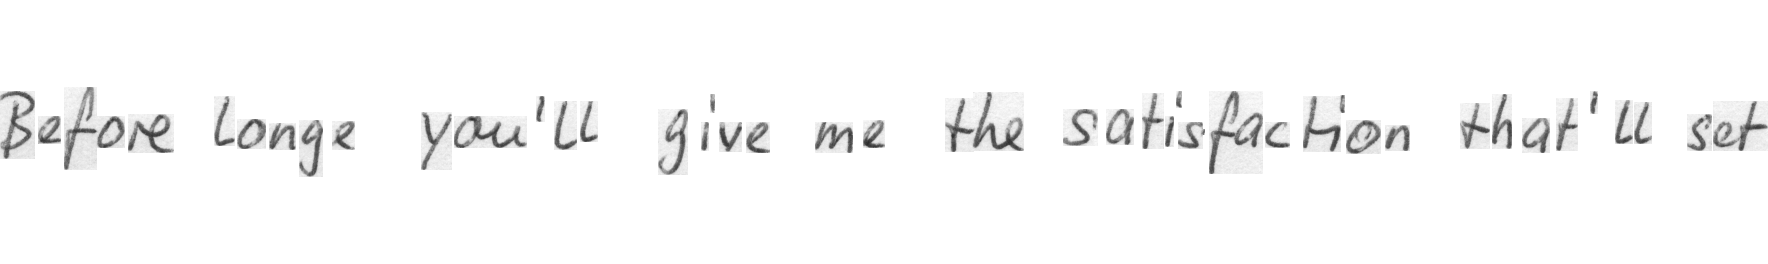 Before longe you'll give me the satisfaction that'll set